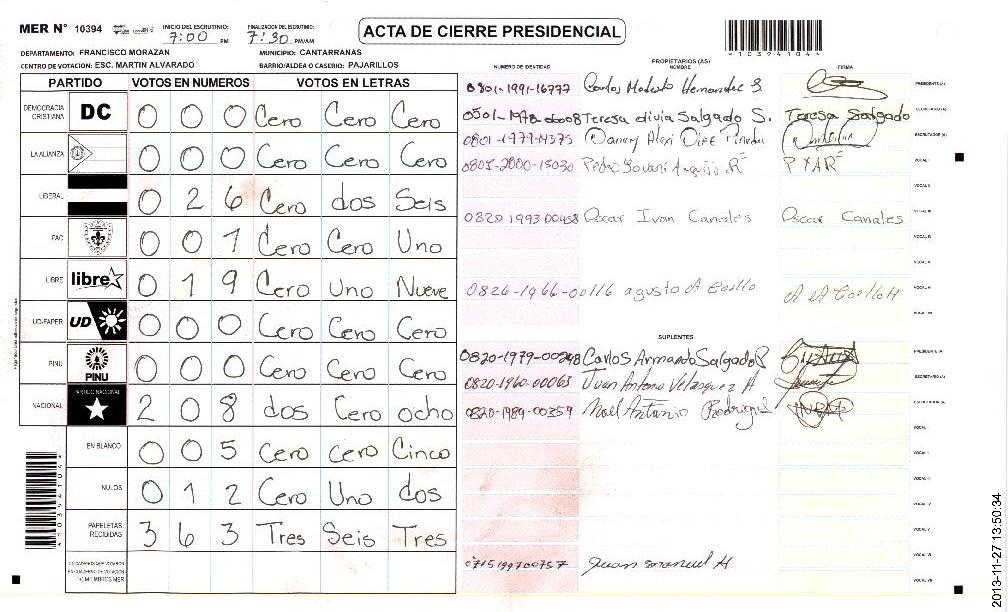 MER N° 10394
INICIO DEL ESCRUTINIO: 7:00 PM
FINALIZACION DEL ESCRUTINIO: 7:30 PM/AM
ACTA DE CIERRE PRESIDENCIAL
*10394104*
DEPARTAMENTO: FRANCISCO MORAZAN
MUNICIPIO: CANTARRANAS
CENTRO DE VOTACION: ESC. MARTIN ALVARADO
BARRIO/ALDEA O CASERIO: PAJARILLOS
PARTIDO VOTOS EN NUMEROS VOTOS EN LETRAS
DEMOCRACIA CRISTIANA DC 0 0 0 Cero Cero Cero
LA ALIANZA 0 0 0 Cero Cero Cero
LIBERAL 0 2 6 Cero dos Seis
PAC 0 0 1 Cero Cero Uno
LIBRE libre 0 1 9 Cero Uno Nueve
UD-FAPER UD 0 0 0 Cero Cero Cero
PINU PINU 0 0 0 Cero Cero Cero
NACIONAL PARTIDO NACIONAL 2 0 8 dos Cero ocho
EN BLANCO 0 0 5 Cero cero Cinco
NULOS 0 1 2 Cero Uno dos
PAPELETAS RECIBIDAS 3 6 3 Tres Seis Tres
CIUDADANOS QUE VOTARON EN CUADERNO DE VOTACION (+) MIEMBROS MER
*10394104*
PROPIETARIOS (AS)
NUMERO DE IDENTIDAD NOMBRE FIRMA
0801-1991-16777 Carlos Modesto Hernandez S. PRESIDENTE (A)
Teresa divia Salgado S. Teresa Salgado SECRETARIO (A)
0801-1979-14375 Danny Alexi ESCRUTADOR (A)
0801-2000-15030 Pedro P YAR VOCAL I
VOCAL II
0820 1993 00458 Oscar Ivan Canales Oscar Canales VOCAL III
VOCAL IV
VOCAL V
0826-1966-00116 agusto A Coello VOCAL VI
VOCAL VII
SUPLENTES
Carlos Armando Salgado PRESIDENTE (A)
0820-1960-00063 Juan Antonio Velasquez A. SECRETARIO (A)
0820-1989-00359 Noel Antonio Rodriguez ESCRUTADOR (A)
VOCAL I
VOCAL II
VOCAL III
VOCAL IV
VOCAL V
0715199700757 Juan manuel H VOCAL VI
VOCAL VII
2013-11-27 13:50:34